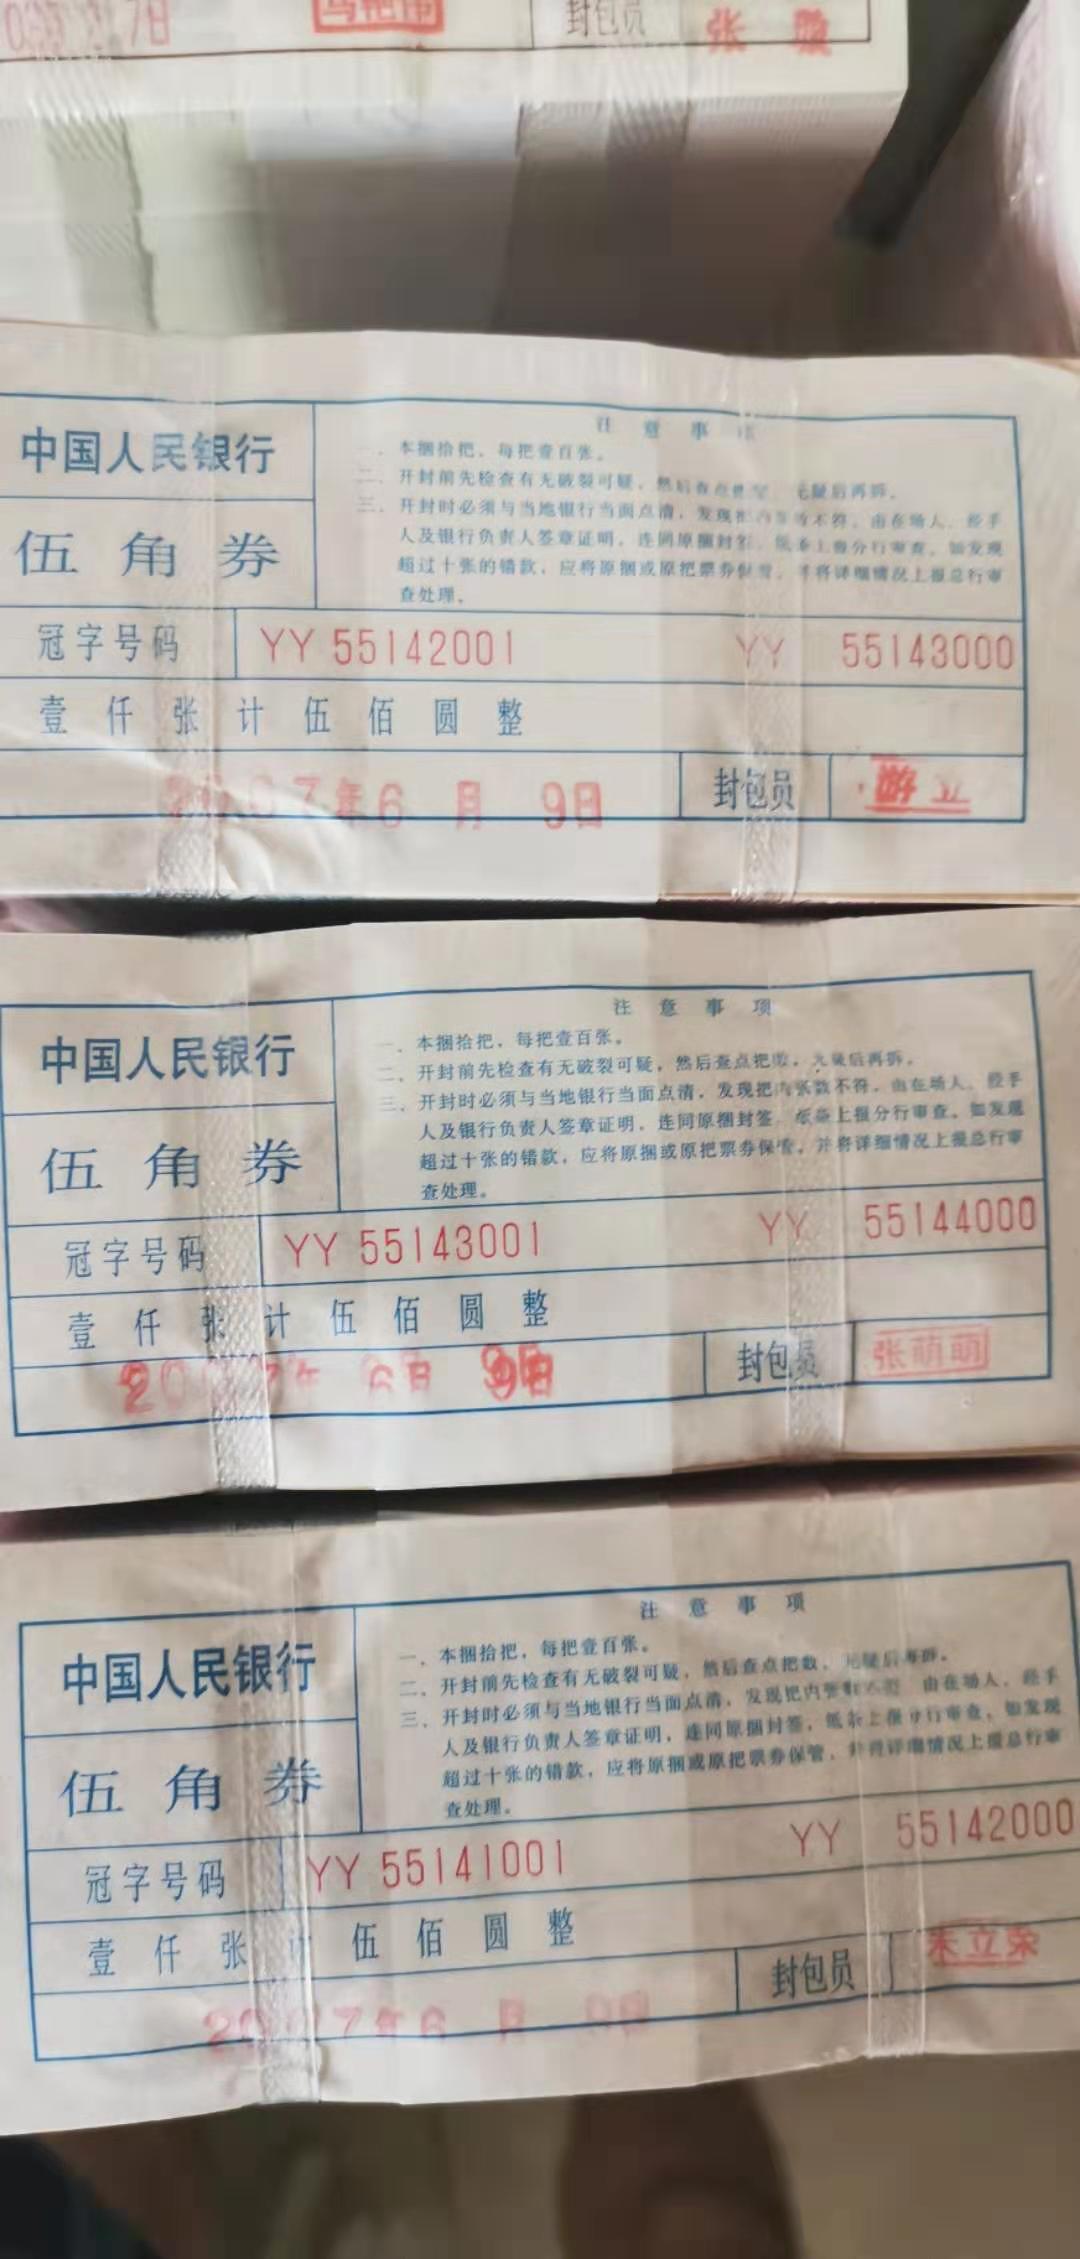 7日
封包员
张
注意事
中国人民银行
一、本捆拾把，每把壹百张。
二、开封前先检查有无破裂可疑，然后查点 无疑后再拆。
伍角券
三、开封时必须与当地银行当面点清，发现把内 不符，由在场人、经手
人及银行负责人签章证明，连同原捆封签、纸条上报分行审查。如发现
超过十张的错款，应将原捆或原把票券保管，并将详细情况上报总行审
查处理。
冠字号码 YY 55142001 YY 55143000
壹仟张计伍佰圆整
2007年6月9日 封包员
注意事项
中国人民银行
一、本捆拾把，每把壹百张。
二、开封前先检查有无破裂可疑，然后查点把数，无疑后再拆。
伍角券
三、开封时必须与当地银行当面点清，发现把内张数不符，由在场人、经手
人及银行负责人签章证明，连同原捆封签、纸条上报分行审查。如发现
超过十张的错款，应将原捆或原把票券保管，并将详细情况上报总行审
查处理。
冠字号码 YY 55143001 YY 55144000
壹仟张计伍佰圆整
2007年 6月 9日 封包员 张萌萌
注意事项
中国人民银行
一、本捆拾把，每把壹百张。
二、开封前先检查有无破裂可疑，然后查点把数，无疑后再拆。
伍角券
三、开封时必须与当地银行当面点清，发现把内 由在场人、经手
人及银行负责人签章证明，连同原捆封签，纸条上报分行审查。如发现
超过十张的错款，应将原捆或原把票券保管，并将详细情况上报总行审
查处理。
冠字号码 YY 55141001 YY 55142000
壹仟张计伍佰圆整
2007年6月 日 封包员 朱立荣